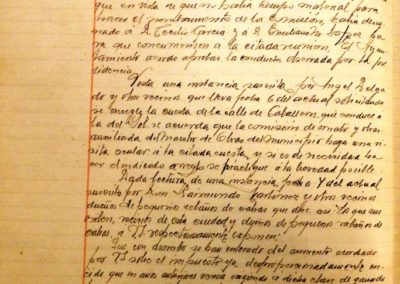 que en vista de que no había tiempo material para
hacer el nombramiento de la Comisión, había desig
nado á D. Cecilio García y á D. Emiliano
ra que concurriesen a la citada reunion. El Ayun
tamiento acordó aprobar la conducta observada por la pre
sidencia.
Vista una instancia suscrita por Angel Delga
do y otros vecinos que lleva fecha 6 del actual solicitando
se arregle la cuesta de la calle de Caballeros, que conduce a
la del Sol se acuerda que la comision de ornato y obras
auxiliada del maestro de Obras del municipio haga una vi
sita ocular á la citada cuesta, y si es de necesidad ha
cer el indicado arreglo se practique a la brevedad posible
Dada lectura de una instancia fecha 7 del actual
suscrita por Don Raimundo Martinez y otros vecinos
dueños de pequeños rebaños de cabras que dice así: Los que sus
criben, vecinos de esta ciudad y dueños de pequeños rebaños de
cabras, á V.S. respetuosamente exponen:
Que con asombro se han enterado del aumento acordado
por V.S. sobre el impuesto ya desproporcionadamente cre
cido que en años anteriores venía exigiendo á dicha clase de ganado